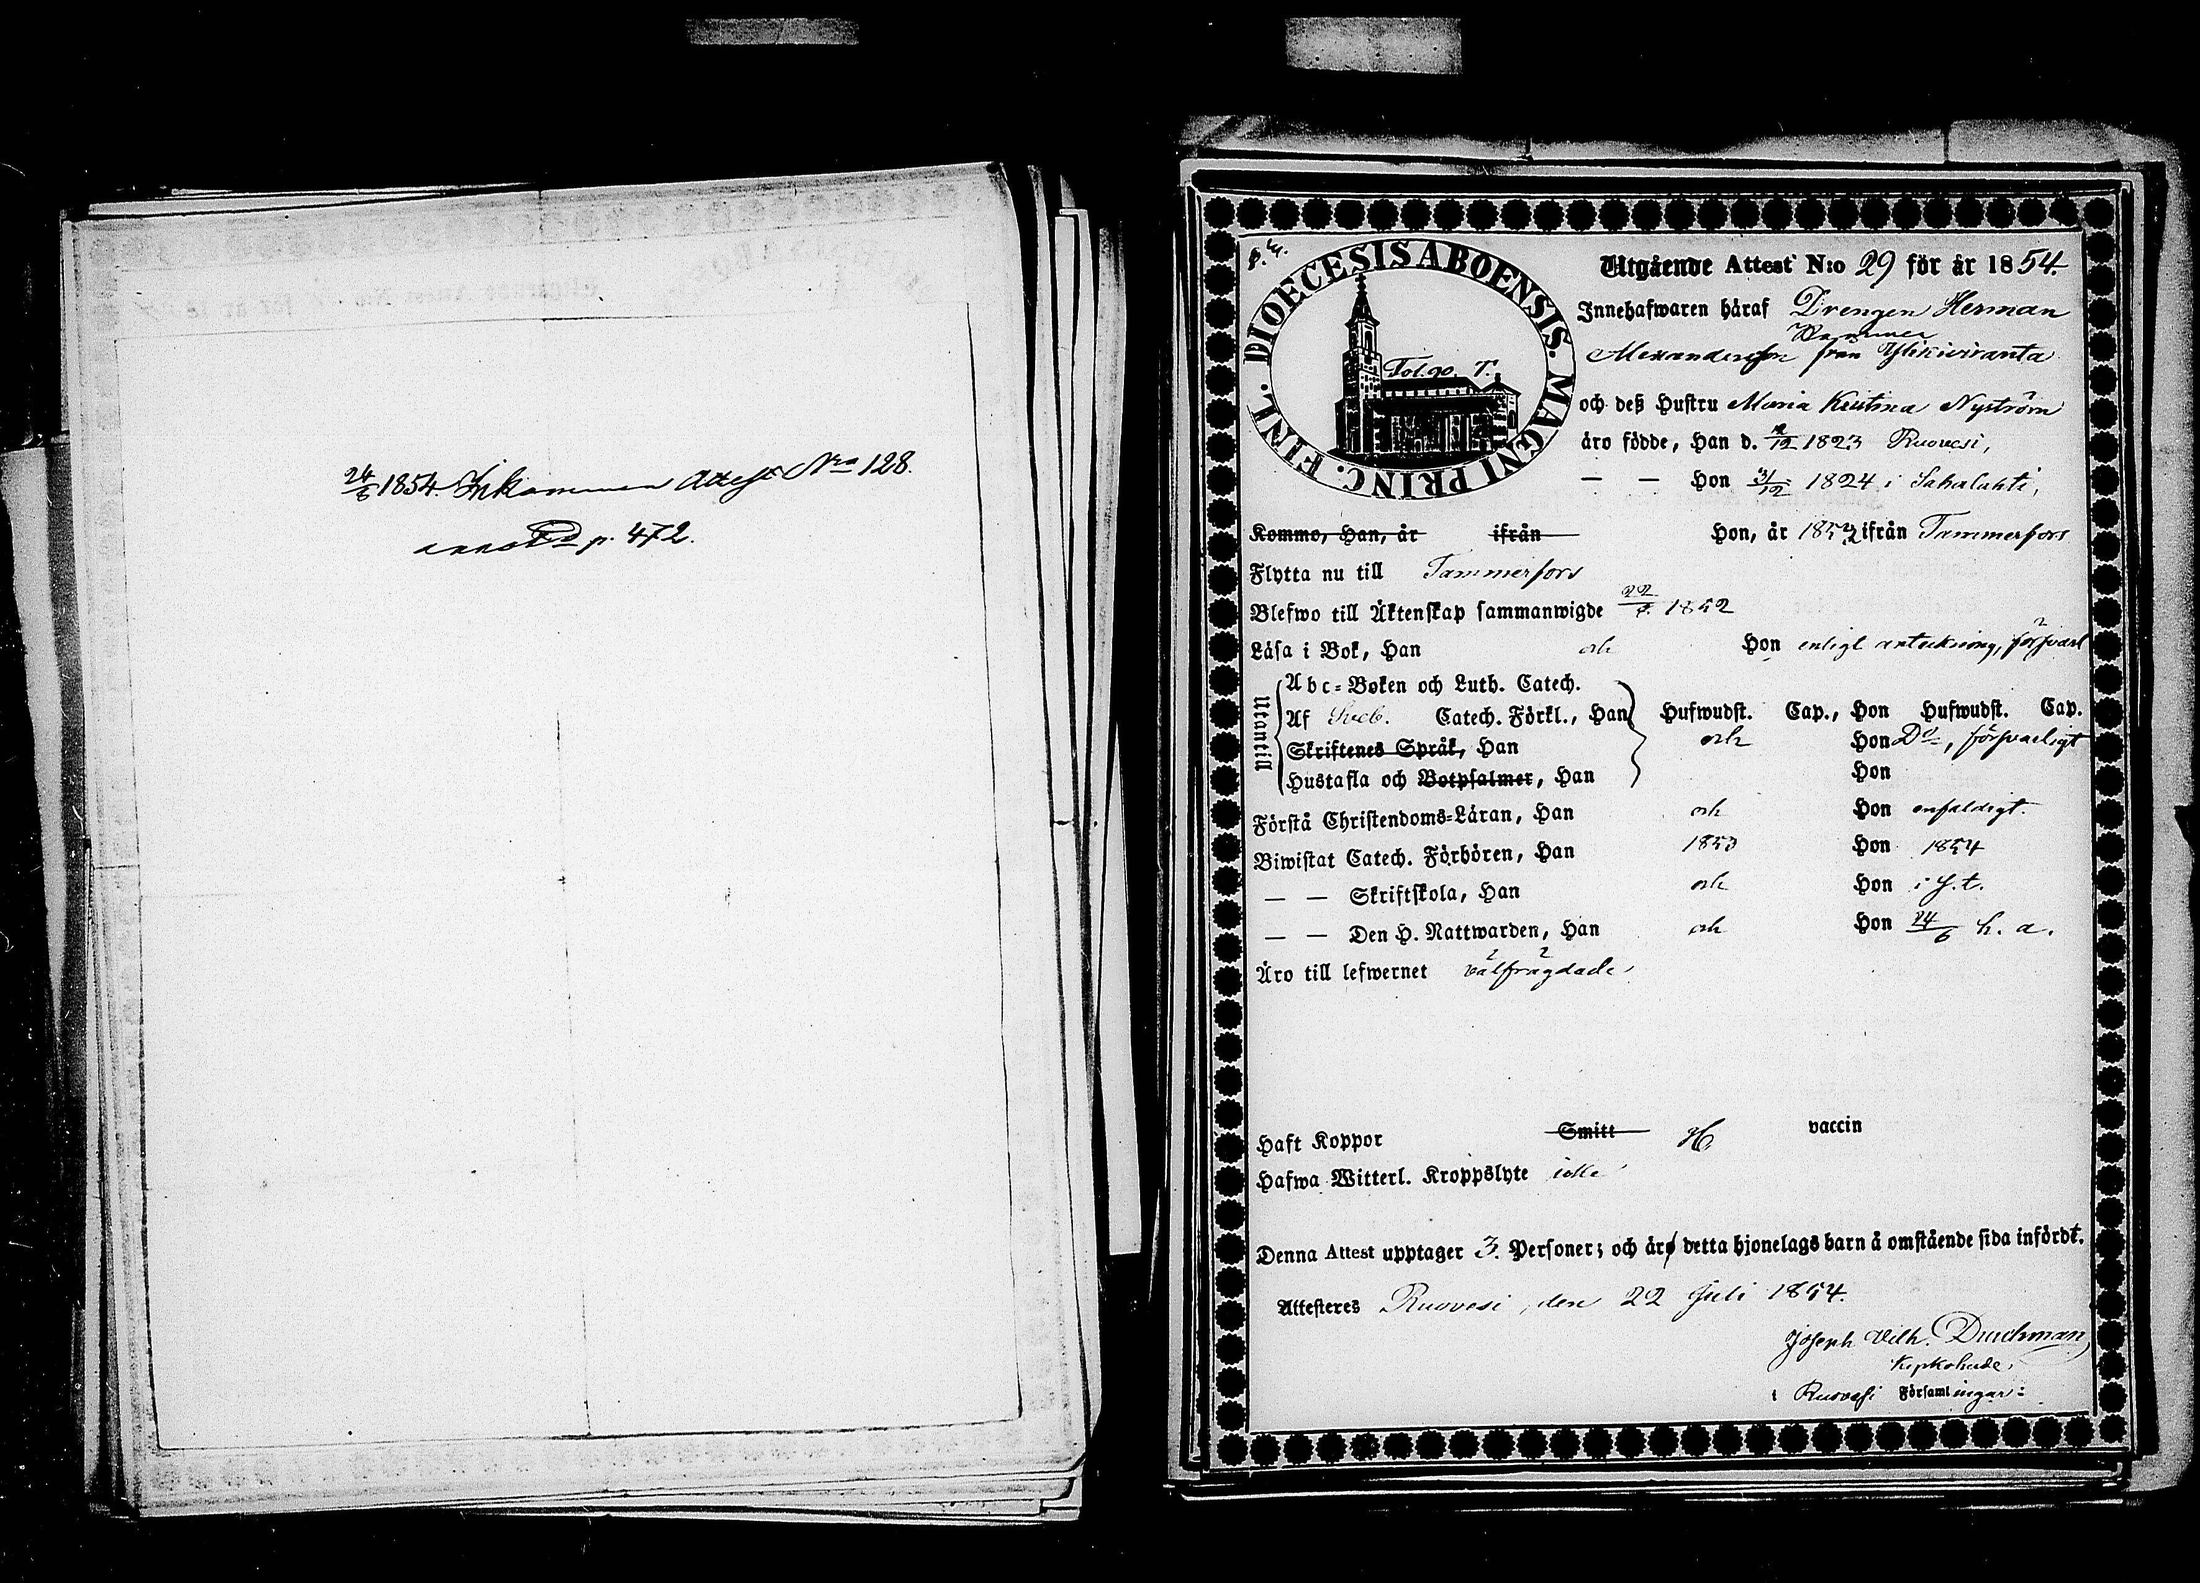 24/6 1854. Inkommen Attest Nro 128.
p. 472.
DIOECESIS ABOENSIS. MAGNI PRINC. FINL.
Fol. 90. T.
Utgående Attest N:o 29 för år 1854.
Innehafwaren håraf Drengen Herman
Alexandersson från Ylikiviranta
och deß Hustru Maria Kristina Nyström
åro födde, Han d. /12 1823 Ruovesi,
— — Hon 3/12 1824 i Sahalahti,
Kommo, Han, år ifrån Hon, år 1852 ifrån Tammerfors
Flytta nu till Tammerfors
Blefwo till Äktenskap sammanwigde 22/ 1852
Läsa i Bok, Han och Hon enligt anteckning, försvarl
Utantill
Abc-Boken och Luth. Catech.
Af Sveb. Catech. Förkl., Han Hufwudst. Cap., Hon Hufwudst. Cap.
Skriftenes Språk, Han och Hon Do, försvarligt
Hustafla och Botpsalmer, Han Hon
Förstå Christendoms-Läran, Han och Hon enfaldigt.
Biwistat Catech. Förhören, Han 1853 Hon 1854
— — Skriftskola, Han och Hon i s. t.
— — Den H. Nattwarden, Han och Hon 24/6 h. a.
Äro till lefwernet välfrägdade
Haft Koppor Smitt vaccin
Hafwa Witterl. Kroppslyte icke
Denna Attest upptager 3. Personer; och är detta hjonelags barn å omstående sida infördt.
Attesteres Ruovesi, den 22 Juli 1854.
Joseph Vilh. Durchman
Kyrkoherde
i Ruovesi Församlingar: